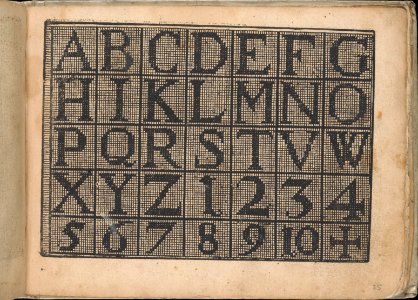 A B C D E F G
H I K L M N O
P Q R S T V W
X Y Z 1 2 3 4
5 6 7 8 9 10 +